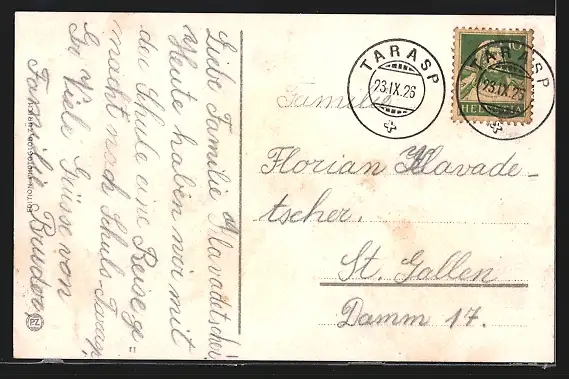 Liebe Familie Klavadtscher,
Heute haben wir mit
der Schule eine Reise ge-
macht nach Schuls-Tarasp,
Viele Grüsse von
Familie
TARASP
23.IX.26
TARASP
23.IX.26
HELVETIA
Familie
Florian Klavade-
tscher.
St. Gallen
Damm 17.
PZ